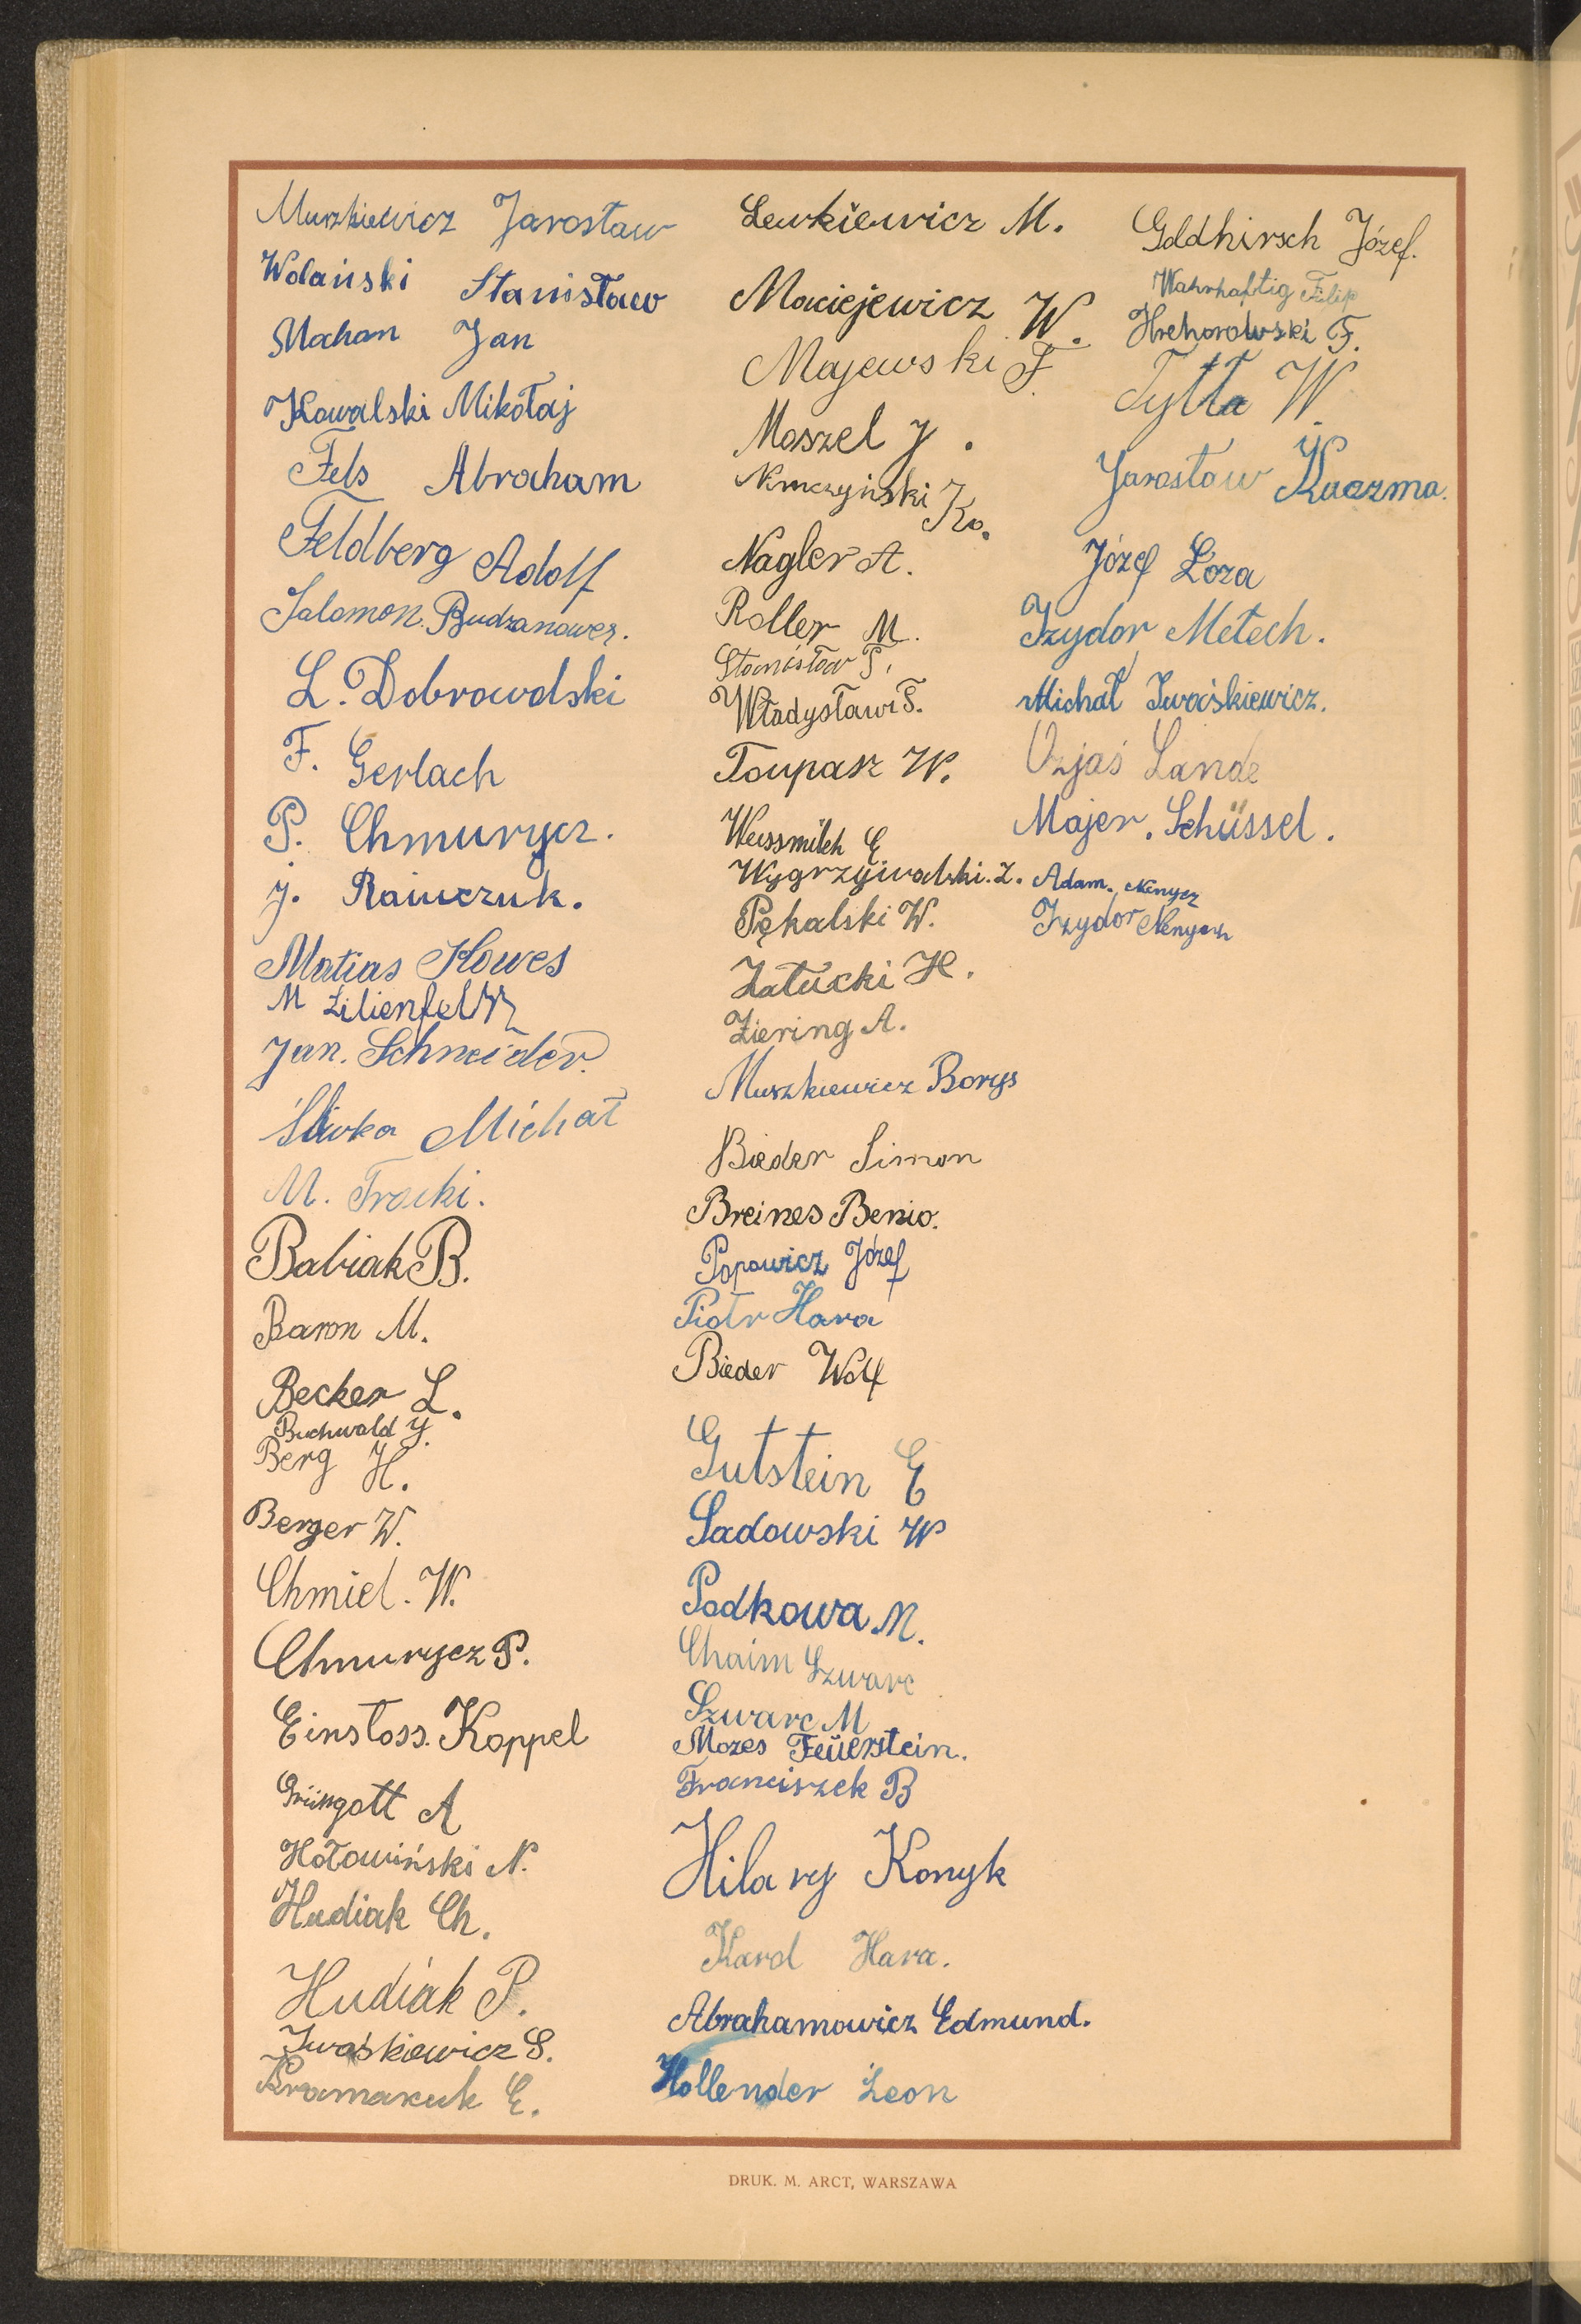 Muszkiewicz Jarosław
Wolański Stanisław
Machan Jan
Kowalski Mikołaj
Fels Abraham
Feldberg Adolf
Salomon Budzanower.
L. Dobrowolski
F. Gerlach
P. Chmurycz.
J. Raiwczuk.
Matias Howes
M Lilienfeld
Jan. Schneider.
Śliwka Michał
M. Tracki.
Babiak B.
Baron M.
Becker L.
Buchwald J.
Berg H.
Berger W.
Chmiel. W.
Chmurycz P.
Einstoss. Koppel
Grüngott A
Hołowiński N.
Hudiak Ch.
Hudiak P.
Iwaśkiewicz S.
Kramaruk E.
Lewkiewicz M.
Maciejewicz W.
Majewski F.
Maszel J.
Nimczyński Ko.
Nagler A.
Roller M.
Stanisław T.
Władysław S.
Toupasz W.
Weissmilch E
Wygrzywalski. Z.
Pękalski W.
Załucki H.
Ziering A.
Muszkiewicz Borys
Bieder Simon
Breines Benio.
Popowicz Józef
Piotr Hara
Bieder Wolf
Gutstein E
Sadowski W
Podkowa M.
Chaim Szwarc
Szwarc M
Mozes Feuerstein.
Franciszek B
Hilary Konyk
Karol Hara.
Abrahamowicz Edmund.
Hollender Leon
Goldhirsch Józef.
Wahrhaftig Filip
Hrehorowski F.
Tytła W.
Jarosław Kuczma.
Józef Łoza
Izydor Metech.
Michał Iwaśkiewicz.
Ozjaś Lande
Majer. Schüssel.
Adam. Nenycz
Izydor Nenycz
DRUK. M. ARCT, WARSZAWA